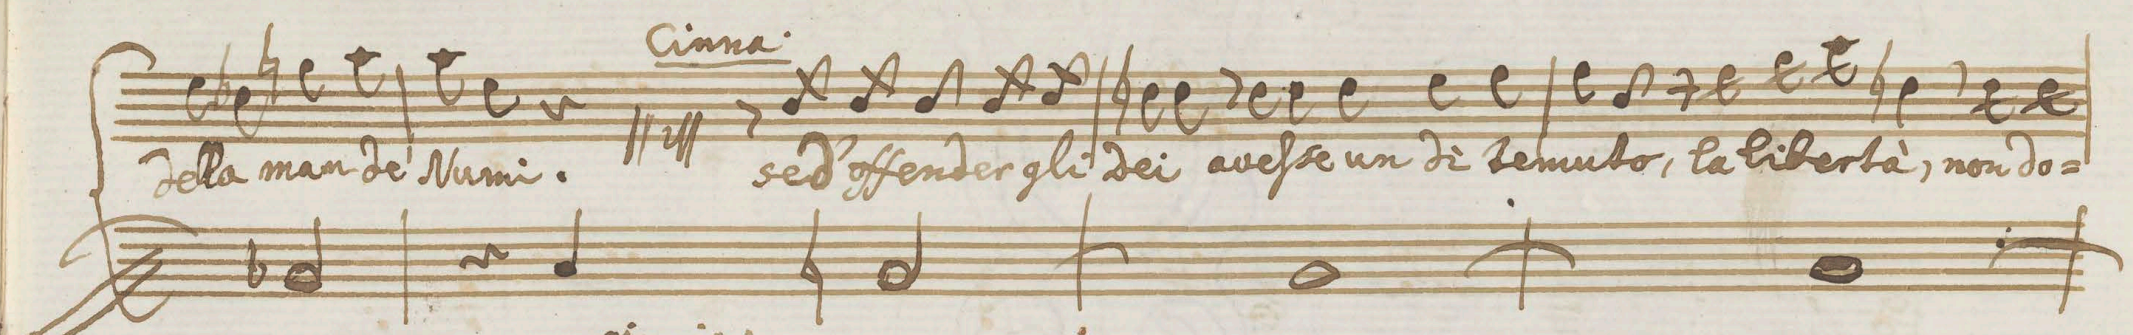 Cinna.
della man de' Numi. sed' offender gli Dei avesse un dì temuto, la libertà, non do=